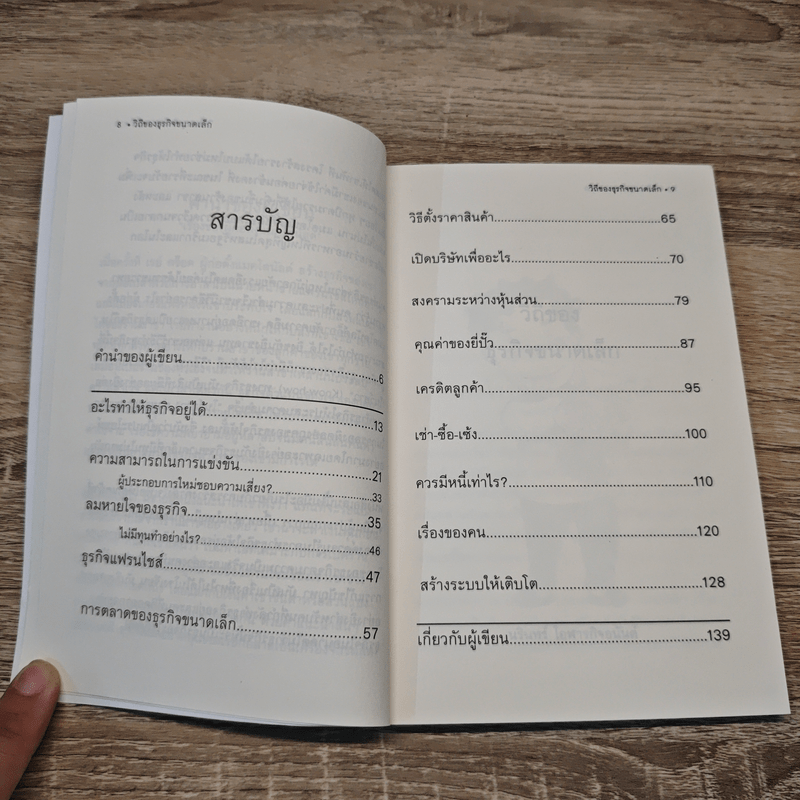 8 • วิถีของธุรกิจขนาดเล็ก
สารบัญ
คำนำของผู้เขียน........................................6
อะไรทำให้ธุรกิจอยู่ได้........................................13
ความสามารถในการแข่งขัน........................................21
ผู้ประกอบการใหม่ชอบความเสี่ยง?........................................33
ลมหายใจของธุรกิจ........................................35
ไม่มีทุนทำอย่างไร?........................................46
ธุรกิจแฟรนไชส์........................................47
การตลาดของธุรกิจขนาดเล็ก........................................57
วิถีของธุรกิจขนาดเล็ก • 9
วิธีตั้งราคาสินค้า........................................65
เปิดบริษัทเพื่ออะไร........................................70
สงครามระหว่างหุ้นส่วน........................................79
คุณค่าของยี่ปั๊ว........................................87
เครดิตลูกค้า........................................95
เช่า-ซื้อ-เซ้ง........................................100
ควรมีหนี้เท่าไร?........................................110
เรื่องของคน........................................120
สร้างระบบให้เติบโต........................................128
เกี่ยวกับผู้เขียน........................................139
วิถีของ
ธุรกิจขนาดเล็ก